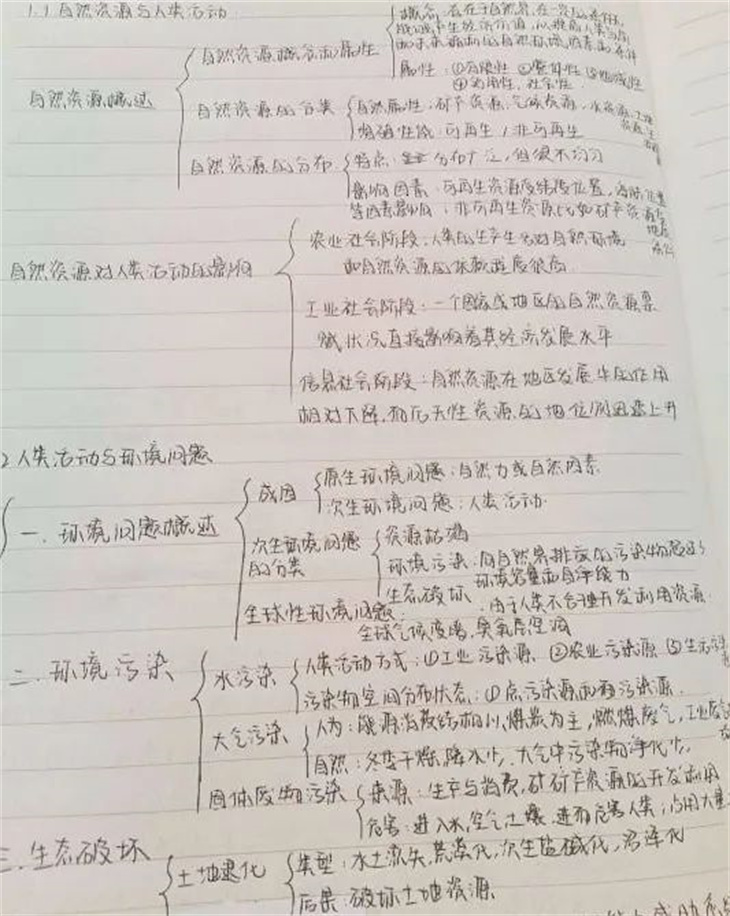 1.1 自然资源与人类活动
自然资源概述
自然资源概念和属性
概念：存在于自然界，在一定
产生经济价值，以提高人类
和未来福利的自然环境因素和条件
属性：①有限性 ②整体性 ③地域性
④多用性，社会性
自然资源的分类
自然属性：矿产资源，气候资源，水资源，土地
资源，生
增殖性能：可再生/非可再生
自然资源的分布
特点： 分布广泛，但很不均匀
影响因素：可再生资源受纬度位置，海陆位置
等因素影响；非可再生资源比如矿产资源
地质
自然资源对人类活动的影响
农业社会阶段：人类的生产生活对自然环境
和自然资源的依赖程度很高
工业社会阶段：一个国家或地区的自然资源禀
赋状况直接影响着其经济发展水平
信息社会阶段：自然资源在地区发展中的作用
相对下降，而后天性资源的地位则迅速上升
2 人类活动与环境问题
一、环境问题概述
成因
原生环境问题：自然力或自然因素
次生环境问题：人类活动
次生环境问题
的分类
资源枯竭
环境污染：向自然界排放的污染物超过
环境容量和自净能力
生态破坏：由于人类不合理开发利用资源
全球性环境问题：
全球气候变暖，臭氧层空洞
二、环境污染
水污染
人类活动方式：①工业污染源 ②农业污染源 ③生活污染
污染物空间分布状态：①点污染源和面污染源
大气污染
人为：能源消费结构以煤炭为主，燃煤废气，工业废气
自然：冬季干燥，降水少，大气中污染物净化少
固体废物污染
来源：生产与消费，矿产资源的开发利用
危害：进入水，空气，土壤，进而危害人类；占用大量
三、生态破坏
土地退化
类型：水土流失，荒漠化，次生盐碱化，沼泽化
后果：破坏土地资源